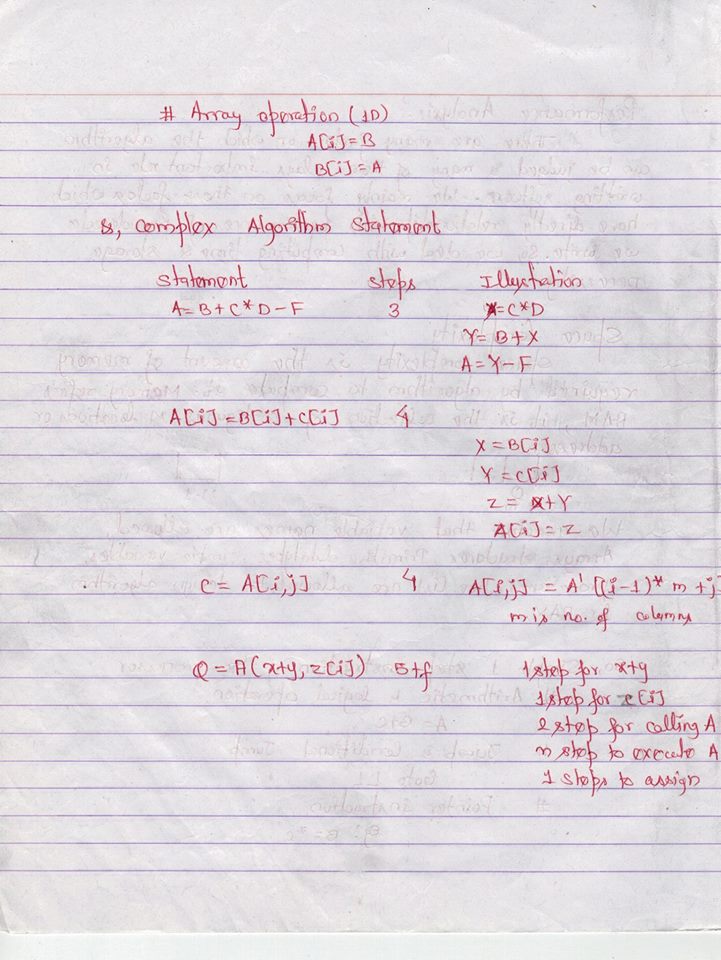 # Array operation (1D)
A[i] = B
B[i] = A
Complex Algorithm Statement
Statement Steps Illustration
A = B + C * D - F 3 X = C * D
Y = B + X
A = Y - F
A[i] = B[i] + C[i] 4
X = B[i]
Y = C[i]
Z = X + Y
A[i] = Z
C = A[i,j] 4 A[i,j] = A' [(i-1)* m + j
m is no. of columns
Q = A(x+y, z[i]) 5+f 1 step for x+y
1 step for z[i]
2 step for calling A
n step to execute A
1 steps to assign